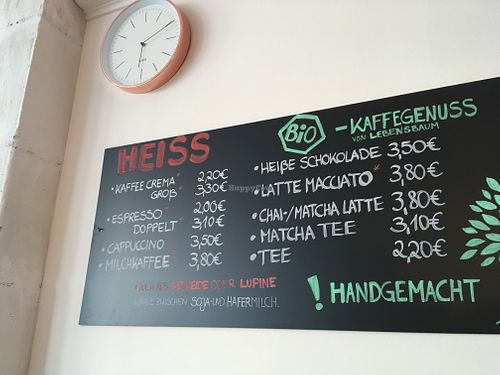 HEISS
• KAFFEE CREMA* 2,20€
GROß* 3,30€
• ESPRESSO* 2,00€
DOPPELT* 3,10€
• CAPPUCCINO* 3,50€
• MILCHKAFFEE* 3,80€
* AUCH ALS GETREIDE ODER LUPINE
ZWISCHEN SOJA- UND HAFERMILCH.
BIO -KAFFEGENUSS
VON LEBENSBAUM
• HEIßE SCHOKOLADE 3,50€
• LATTE MACCIATO* 3,80€
• CHAI-/MATCHA LATTE 3,80€
• MATCHA TEE 3,10€
• TEE 2,20€
! HANDGEMACHT